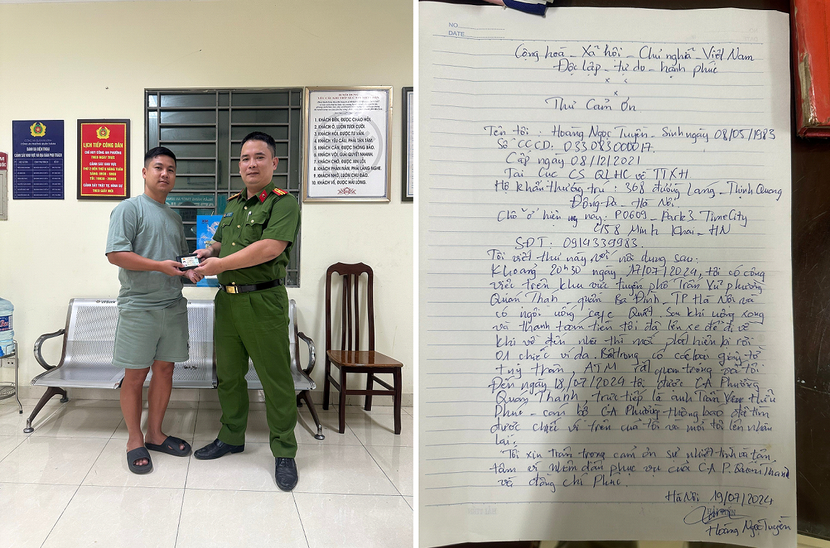 LỊCH TIẾP CÔNG DÂN
1. KHÁCH ĐẾN, ĐƯỢC CHÀO HỎI.
2. KHÁCH Ở, LUÔN TƯƠI CƯỜI.
3. KHÁCH HỎI, ĐƯỢC TƯ VẤN.
4. KHÁCH YÊU CẦU, PHẢI TẬN TÂM.
5. KHÁCH CẦN, ĐƯỢC THÔNG BÁO.
6. KHÁCH VỘI, GIẢI QUYẾT NHANH.
7. KHÁCH ĐỢI, ĐƯỢC XIN LỖI.
8. KHÁCH PHÀN NÀN, PHẢI LẮNG NGHE.
9. KHÁCH NHỜ, LUÔN CHU ĐÁO.
10. KHÁCH VỀ, ĐƯỢC HÀI LÒNG.
NO
DATE
Cộng hoà - Xã hội - Chủ nghĩa - Việt Nam
Độc lập - tự do - hạnh phúc
Thư Cảm Ơn
Tên tôi : Hoàng Ngọc Tuyên - Sinh ngày 08/05/1983
Số CCCD: 033083000017
Cấp ngày 08/12/2021
Tại Cục CS QLHC về TTXH
Hộ khẩu thường trú : 368 đường Láng - Thịnh Quang
Đống Đa - Hà Nội
Chỗ ở hiện nay : P0609 - Park3 TimeCity
458 Minh Khai - HN
SĐT: 0914339983
Tôi viết thư này với nội dung sau:
Khoảng 20h30 ngày 17/07/2024, tôi có công
việc trên khu vực tuyến phố Trấn Vũ phường
Quán Thánh, quận Ba Đình - TP Hà Nội và
có ngồi uống cafe Sau khi uống xong
và thanh toán tiền tôi đã lên xe để đi về
khi về đến nhà thì mới phát hiện bị rơi
01 chiếc ví da. Bên trong có các loại giấy tờ
tuỳ thân, ATM rất quan trọng với tôi
Đến ngày 18/07/2024 tôi được CA Phường
Quán Thánh, trực tiếp là anh Hữu
Phúc - cán bộ CA Phường thông báo đã tìm
được chiếc ví trên của tôi và mời tôi lên nhận
lại.
Tôi xin trân trọng cảm ơn sự nhiệt tình và tận
tâm vì nhân dân phục vụ của CA P. Quán Thánh
và đồng chí Phúc.
Hà Nội 19/07/2024
Hoàng Ngọc Tuyên